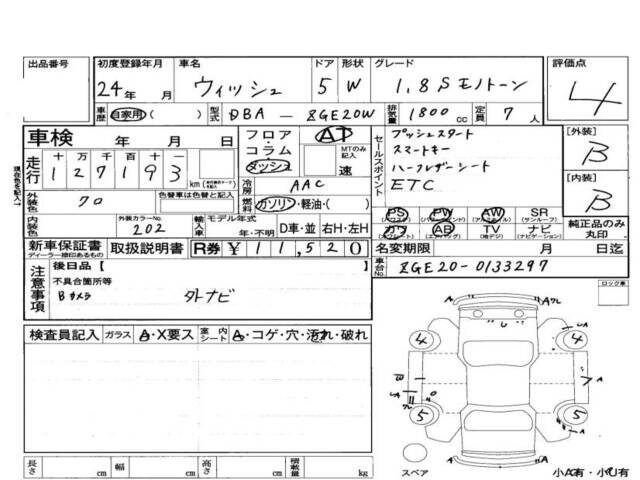 出品番号
初度登録年月
24年 月
車名
ウィッシュ
ドア
5
形状
W
グレード
1.8Sモノトーン
評価点
4
車歴
自家用・( )
型式
DBA-ZGE20W
排気量
1800 cc
定員
7人
車検 年 月 日
フロア・コラム・ダッシュ
AT
MTのみ記入
速
セールスポイント
プッシュスタート
スマートキー
ハーフレザーシート
ETC
[外装]
B
[内装]
B
現在色を記入→
走行
十 万 千 百 十 一
1 2 7 1 9 3
km
冷房
AAC
外装色
70
色替車は色替と記入
燃料
ガソリン・軽油・( )
内装色
外装カラーNo.
202
輸入車
モデル年式
年・不明
D車・並
右H・左H
PS
PW
AW
SR
(サンルーフ)
カワ
AB
TV
(地デジ)
ナビ
(ナビゲーション)
純正品のみ
丸印
新車保証書
ディーラー捺印あるもの
取扱説明書
R券 ¥ 11,520
名変期限 月 日迄
注意事項
後日品【
不具合箇所等
Bカメラ
外ナビ
車台No.
ZGE20-0133297
ロック車
検査員記入
ガラス
A・X要ス
室内シート
A・コゲ・穴・汚れ・破れ
4 4
5 5
スペア
長さ cm
幅 cm
高さ cm
積載量 kg
小A有・小U有